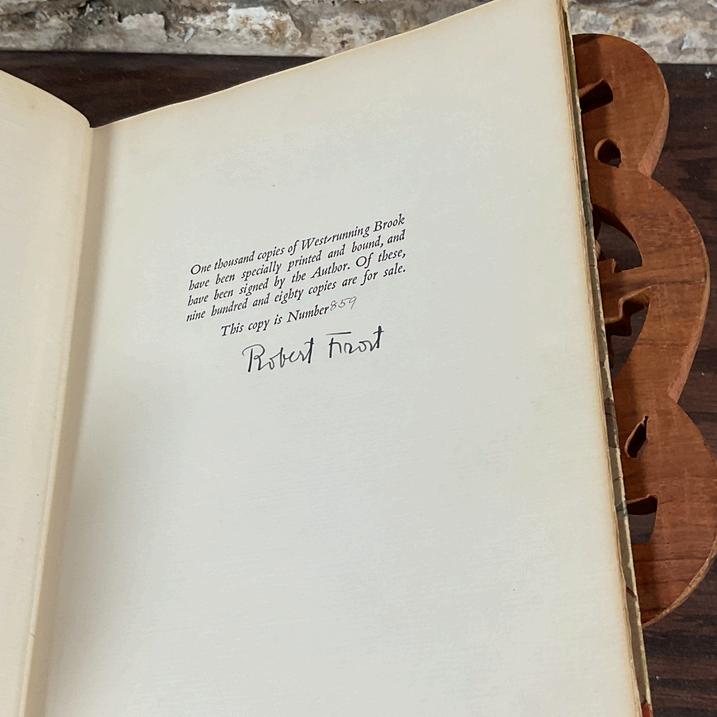 One thousand copies of West-running Brook
have been specially printed and bound, and
have been signed by the Author. Of these,
nine hundred and eighty copies are for sale.
This copy is Number 859
Robert Frost